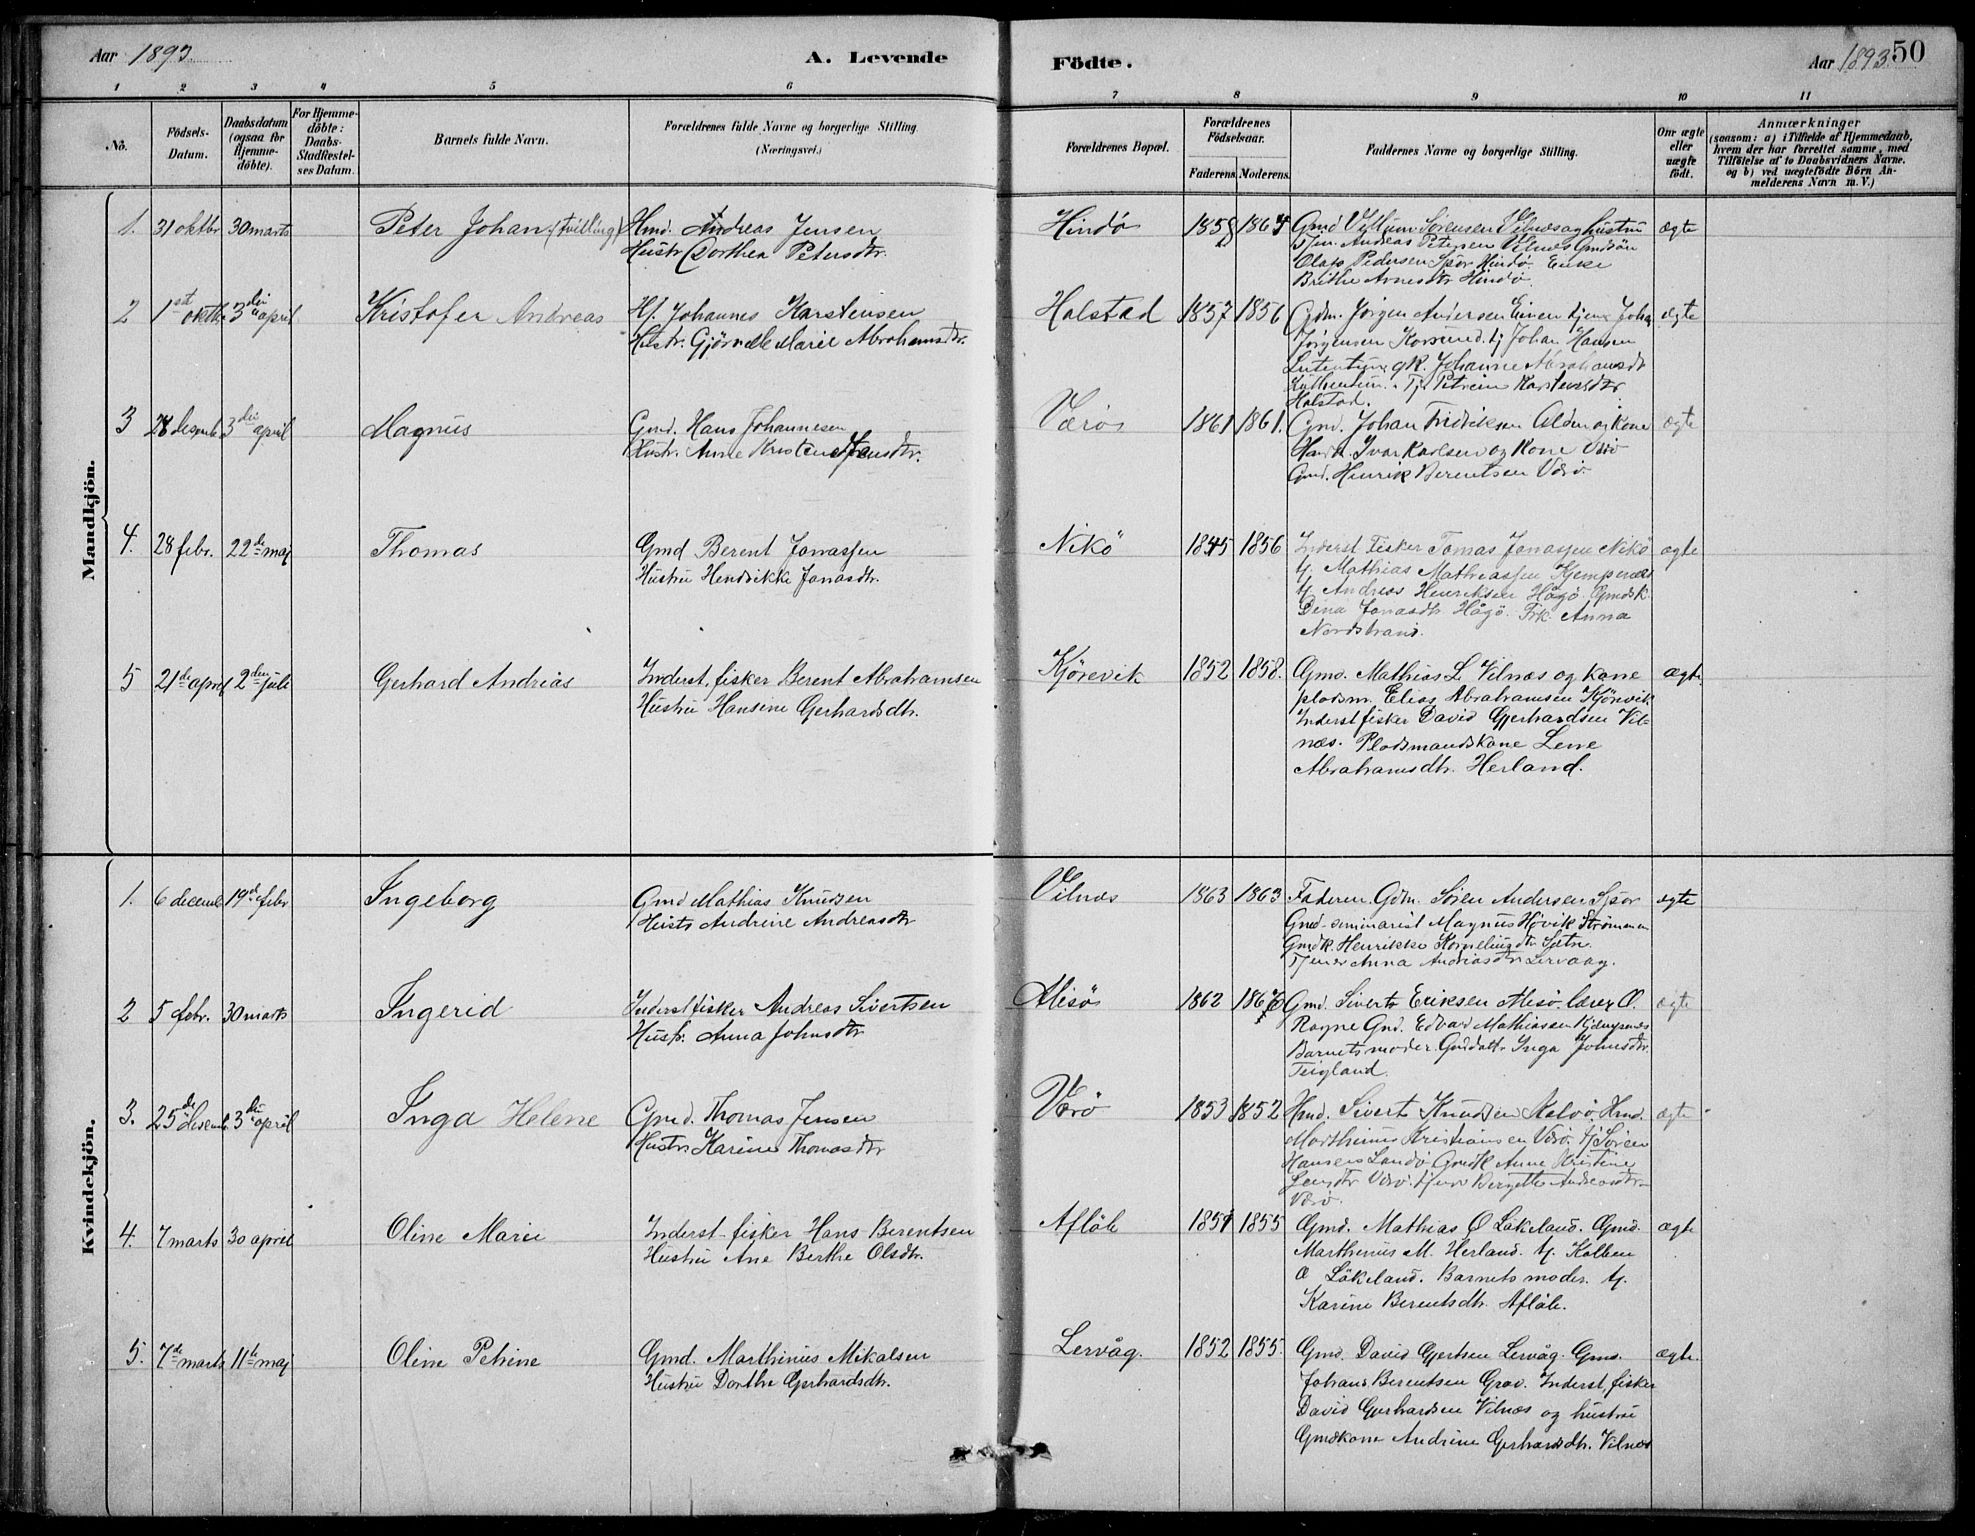 Aar 1893.
A. Levende
Födte.
Aar 1893. 50
1 2 3 4 5 6 7 8 9 10 11
No.
Födsels-Datum.
Daabsdatum (ogsaa for Hjemmedöbte).
For Hjemmedöbte: Daabs-Stadfæstelses Datum.
Barnets fulde Navn.
Forældrenes fulde Navne og borgerlige Stilling.
(Næringsvei.)
Forældrenes Bopæl.
Forældrenes Födselsaar.
Faderens. Moderens.
Faddernes Navne og borgerlige Stilling.
Om ægte eller uægte födt.
Anmærkninger
(saasom: a) i Tilfælde af Hjemmedaab, hvem der har forrettet samme, med Tilföielse af to Daabsvidners Navne, og b) ved uægtefödte Börn Anmelderens Navn m. V.)
Mandkjön.
1. 31 oktbr 30 marts Peter Johan (tvilling) Hmd. Andreas Jensen
Hustr Dorthea Petersdtr.
Hindö 1858 1864
Olaf Pedersen Hindö. Enke
Brithe Arnesdtr Hindö.
ægte
2 1st oktbr. 3die april Kristofer Andreas Hf. Johannes Karstensen
Hustr. Marie Abrahamsdtr.
Halstad 1857 1856 Gdm. Jörgen Andersen tjener Johan
Jörgensen Korssund. tj Johan Hansen
gk. Johanne Abrahamsdt
Halstad.
ægte
3 28 desemb. 3die april Magnus Gmd. Hans Johannesen
Hustr. Anne Kristense Hansdtr.
Værö 1861 1861. Gmd. Johan Fredriksen Alden og kone
Ivar Karlsen og Kone Værö
Gmd. Henrik Berentsen Værö.
ægte
4. 28 febr. 22de maj Thomas Gmd Berent Jonassen
Hustru Hendrikke Jonasdtr.
Nikö 1845 1856 Inderst Fisker Tomas Jonassen Nikö
tj. Mathias Mathiassen Kjempenæs
tj. Andreas Henriksen Hågö. Gmdsk.
Dina Jonasdtr Hågö. Frk. Anna
Nordstrand.
ægte
5 21de april 2den juli Gerhard Andrias Inderst. fisker Berent Abrahamsen
Hustru Hansine Gerhardsdtr.
Kjörevik 1852 1858. Gmd. Mathias L Vilnæs og kone
pladsm. Elias Abrahamsen Kjörevik
Inderst fisker David Gjerhardsen Vil-
næs. Pladsmandskone Lene
Abrahamsdtr. Herland.
ægte.
Kvindekjön.
1. 6 decemb 19de febr Ingeborg Gmd Mathias Knudsen
Hustr Andrine Andreasdtr
Vilnæs 1863 1863 Faderen. Gdm. Sören Andersen
Gmd-seminarist Magnus Hövik Strömmen
Gmdk. Henrikke
Tjener Anna Andriasdtr Lervaag.
ægte
2 5 febr. 30 marts Ingerid Inderst fisker Andreas Sivertsen
Hustr. Anna Johnsdtr
Alisö 1862 Gmd. Siverts Eriksen Alisö. lærer O.
Gmd. Edvard Mathiassen Kjempenæs
Barnets moder. Gmddatr Inga Johnsdtr.
Teigland.
ægte
3. 25de desemb. 3die april Inga Helene Gmd. Thomas Jensen
Hustr Karine Thomasdtr
Værö 1853 1852 Hmd. Sivert Knudsen Hmd.
Marthinus Kristiansen Værö. tj Sören
Hansens Landö. Gmdk Anne Kristine
Værö.
ægte
4. 7 marts 30 april Oline Marie Inderst-fisker Hans Berentsen
Hustru Ane Berthe Olsdtr.
Aflöb 1851 1855 Gmd. Mathias O Lökeland. Gmd.
Marthinus M. Herland. tj. Kolben
O Lökeland. Barnets moder. tj.
Karine Berentsdtr. Aflöb.
ægte
5. 7de marts 11te maj Oline Petrine Gmd. Marthinus Mikalsen
Hustru Dorthe Gerhardsdtr.
Lervåg. 1852 1855. Gmd. David Gjertsen Lervåg. Gmd.
Johans Berentsen Grov. Inderst. fisker
David Gjerhardsen Vilnæs og hustru
Gmdkone Andrine Gerhardsdtr. Vilnæs
ægte.